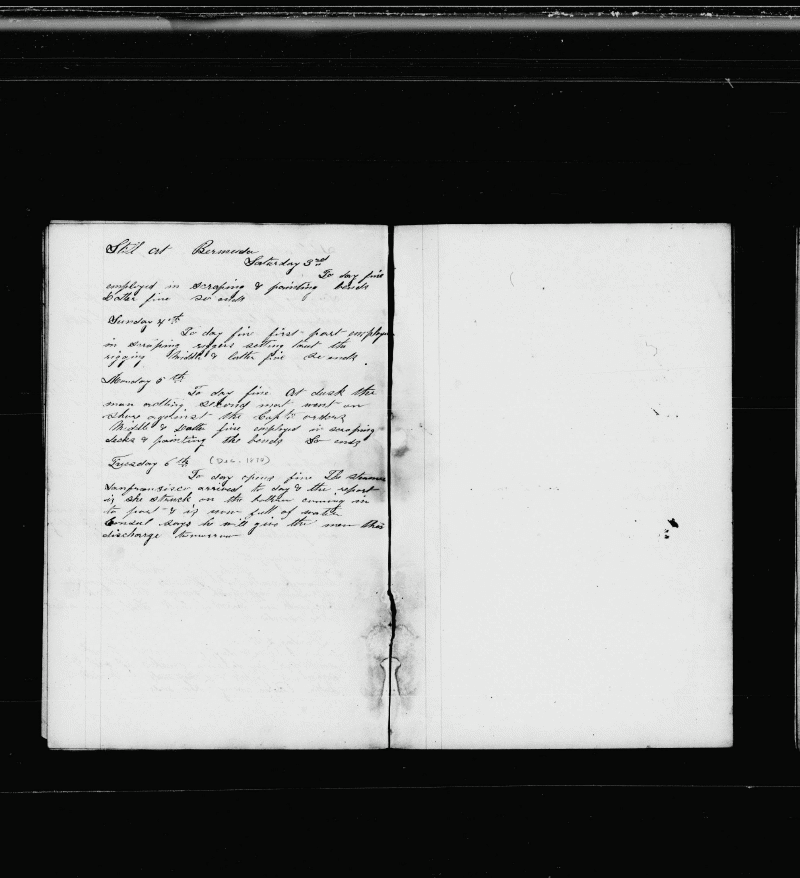 Still at Bermuda
Saturday 3rd
To day fine
employed in scraping & painting bends
Latter fine So ends
Sunday 4th
To day fine first part employed
in scraping riggers setting taut the
rigging Middle & latter fine So ends
Monday 5th
To day fine At dusk the
man second mat went on
shore against the Capts orders
Middle & Latter fine employed in scraping
decks & painting the bends So ends
Tuesday 6th (Dec. 1870)
To day opens fine The steamer
Sanfransisco arrived to day & the report
is she struck on the coming in
to port & is now full of water
Consul says he will give the men thier
discharge tomorrow